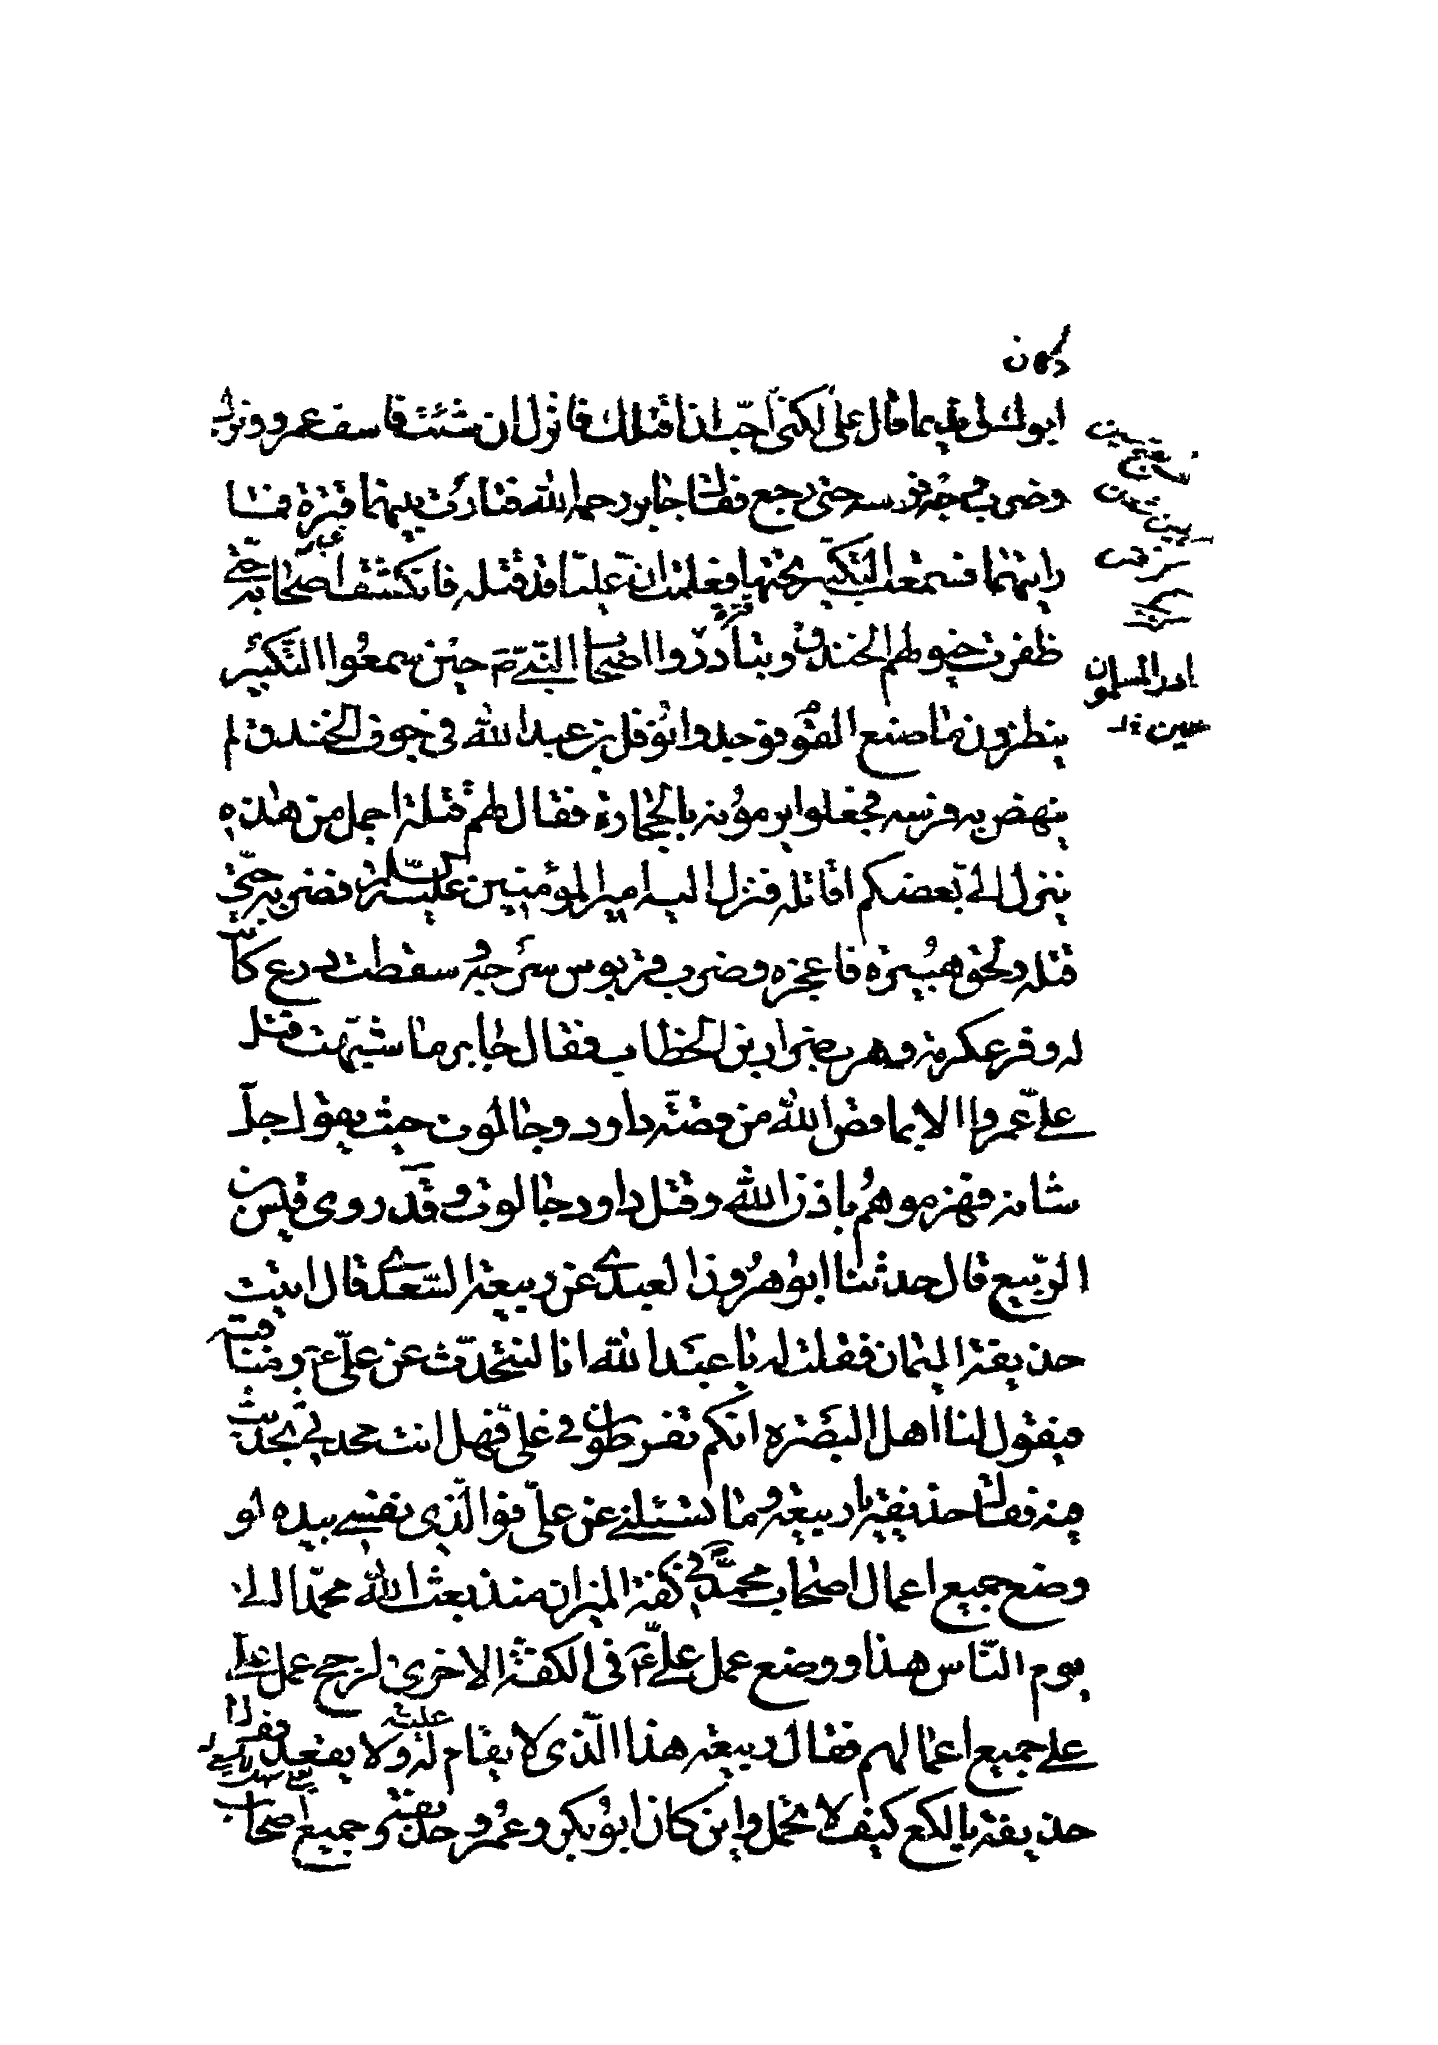 ابوك لى نديما قال على لكنى احب ان اقتلك فانزل ان شئت فاسف عمرو ونزل
وضرب وجه فرسه حتى رجع فقال جابر رحمه الله فثارت بينهما قترة فما
رايتهما فسمعت التكبير تحتها فعلمت ان عليّا قد قتله فانكشف اصحابه حتى
ظفرت خيولهم الخندق وتبادروا اصحاب النبى ص حين سمعوا التكبير
ينظرون ما صنع القوم فوجدوا نوفل بن عبد الله فى جوف الخندق لم
ينهض به فرسه فجعلوا يرمونه بالحجارة فقال لهم قتلة اجمل من هذه
ينزل الىّ بعضكم اقاتله فنزل اليه امير المؤمنين عليه السلم فضربه حتى
قتله ولحق هبيرة فاعجزه وضرب قربوس سرجه وسقطت درع كانت
له وفر عكرمة وهرب ضرار بن الخطاب فقال جابر ما شبهت قتل
علىّ عمروا الا بما قص الله من قصّة داود وجالوت حيث يقول جل
شانه فهزموهم باذن الله وقتل داود جالوت وقد روى قيس بن
الربيع قال حدثنا ابو هرون العبدى عن ربيعة السّعدى قال اتيت
حذيفة اليمان فقلت له يا عبد الله انا لنتحدّث عن علىّ ع ومناقبه
فيقول لنا اهل البصرة انكم تفرطون فى على فهل انت محدثى بحديث
فيه فقال حذيفة يا ربيعة وما تسئلنى عن علىّ فوالّذى نفسى بيده لو
وضع جميع اعمال اصحاب محمّد فى كفة الميزان منذ بعث الله محمّدا الى
يوم النّاس هذا ووضع عمل علىّ ع فى الكفة الاخرى لرجح عمل على
على جميع اعمالهم فقال ربيعة هذا الّذى لا يقام له ولا يقعد عليه فقال
حذيفة يا لكع كيف لا تحمل واين كان ابو بكر وعمر وحذيفة وجميع اصحاب